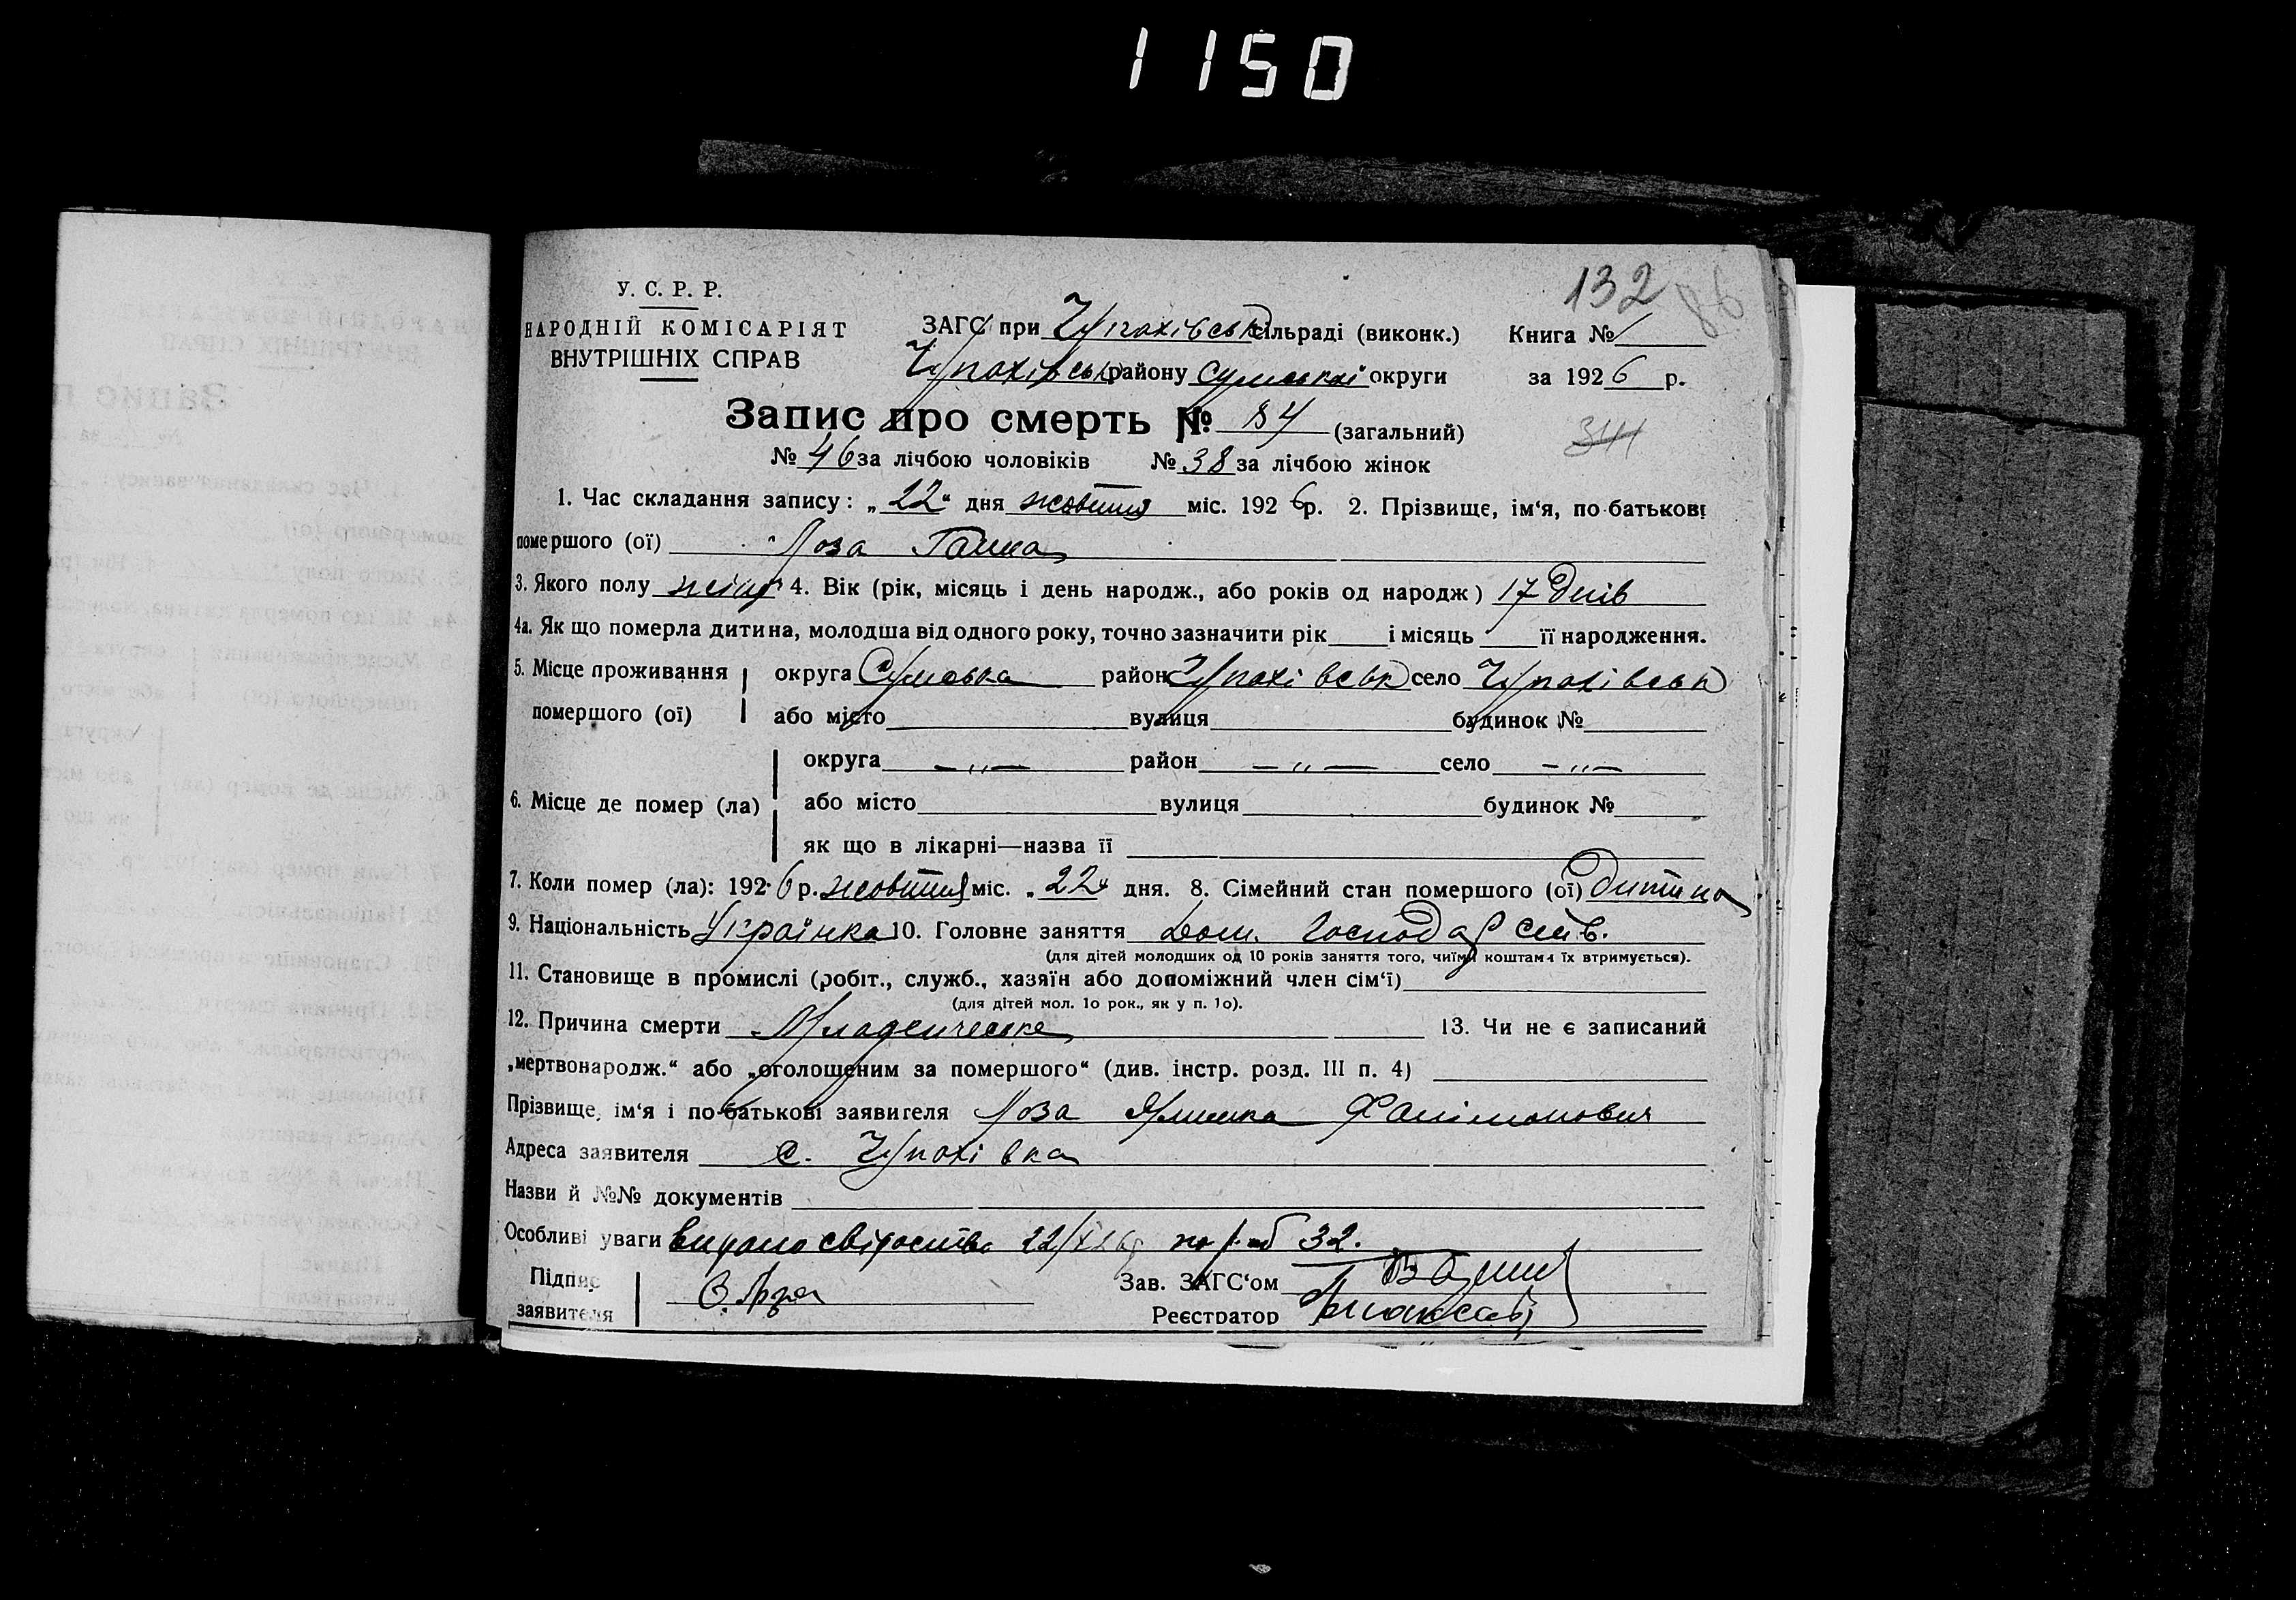 1150
132 86
У. С. Р. Р.
НАРОДНІЙ КОМІСАРІЯТ
ВНУТРІШНІХ СПРАВ
ЗАГС при Чупахівськ сільраді (виконк.) Книга № 1
Чупахівськ району Сумської округи за 1926 р.
Запис про смерть № 84 (загальний)
344
№ 46 за лічбою чоловіків № 38 за лічбою жінок
1. Час складання запису: „22“ дня жовтня міс. 1926 р. 2. Прізвище, ім‘я, по-батькові
помершого (ої) Лоза Галка
3. Якого полу жіноч 4. Вік (рік, місяць і день народж., або років од народж) 17 днів
4а. Як що померла дитина, молодша від одного року, точно зазначити рік і місяць її народження.
5. Місце проживання помершого (ої)
округа Сумська район Чупахівськ село Чупахівськ
або місто вулиця будинок №
6. Місце де помер (ла)
округа —„— район —„— село —„—
або місто вулиця будинок №
як що в лікарні—назва її
7. Коли помер (ла): 1926 р. жовтня міс. „22“ дня. 8. Сімейний стан помершого (ої) Дитина
9. Національність Українка 10. Головне заняття Дом. Господар
(для дітей молодших од 10 років заняття того, чиїми коштами їх втримується).
11. Становище в промислі (робіт., служб., хазяїн або допоміжний член сім‘ї)
(для дітей мол. 1о рок., як у п. 1о).
12. Причина смерти Младенческа 13. Чи не є записаний
„мертвонародж.“ або „оголошеним за помершого“ (див. інстр. розд. III п. 4)
Прізвище, ім‘я і по-батькові заявителя Лоза Філімонович
Адреса заявителя с. Чупахівка
Назви й №№ документів
Особливі уваги видано свідоцтво 22/X 32.
Підпис
заявителя
Зав. ЗАГС‘ом
Реєстратор